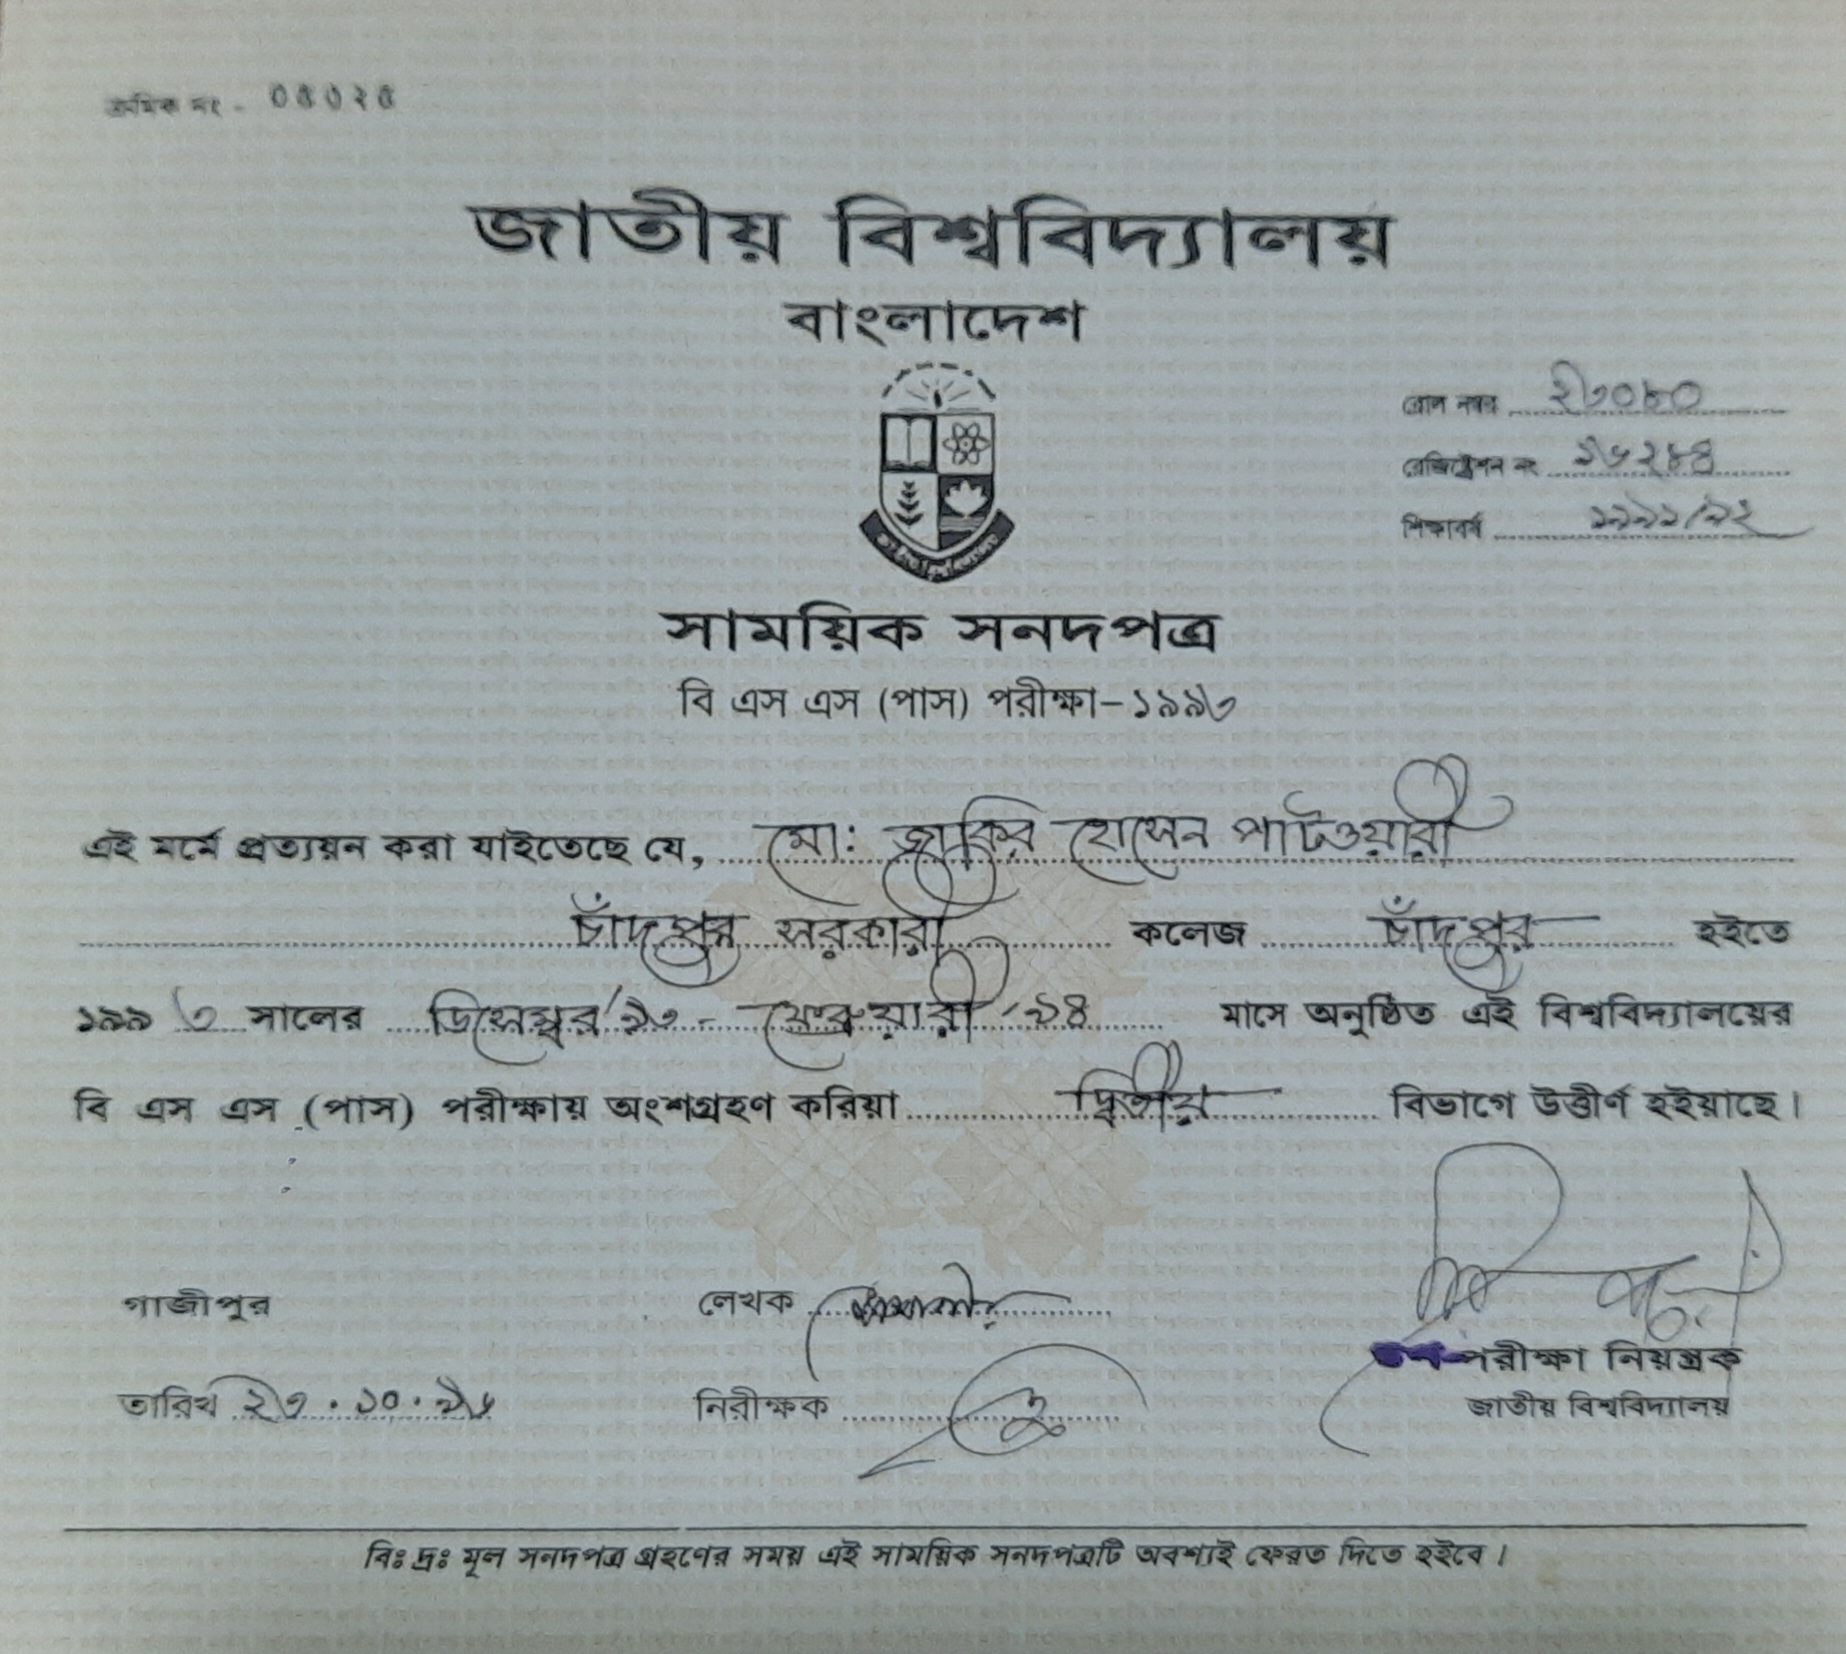 ক্রমিক নং -
জাতীয় বিশ্ববিদ্যালয়
বাংলাদেশ
রোল নম্বর ২৩০৮০
রেজিষ্ট্রেশন নং ১৬২৮৪
শিক্ষাবর্ষ ১৯৯১/৯২
সাময়িক সনদপত্র
বি এস এস (পাস) পরীক্ষা-১৯৯৩
এই মর্মে প্রত্যয়ন করা যাইতেছে যে, মো: জাকির হোসেন পাটওয়ারী
চাঁদপুর সরকারী কলেজ চাঁদপুর হইতে
১৯৯৩ সালের ডিসেম্বর/৯৩ - ফেব্রুয়ারী/৯৪ মাসে অনুষ্ঠিত এই বিশ্ববিদ্যালয়ের
বি এস এস (পাস) পরীক্ষায় অংশগ্রহণ করিয়া দ্বিতীয় বিভাগে উত্তীর্ণ হইয়াছে।
গাজীপুর
লেখক
পরীক্ষা নিয়ন্ত্রক
তারিখ ২৩.১০.৯৬
নিরীক্ষক
জাতীয় বিশ্ববিদ্যালয়
বিঃ দ্রঃ মূল সনদপত্র গ্রহণের সময় এই সাময়িক সনদপত্রটি অবশ্যই ফেরত দিতে হইবে।